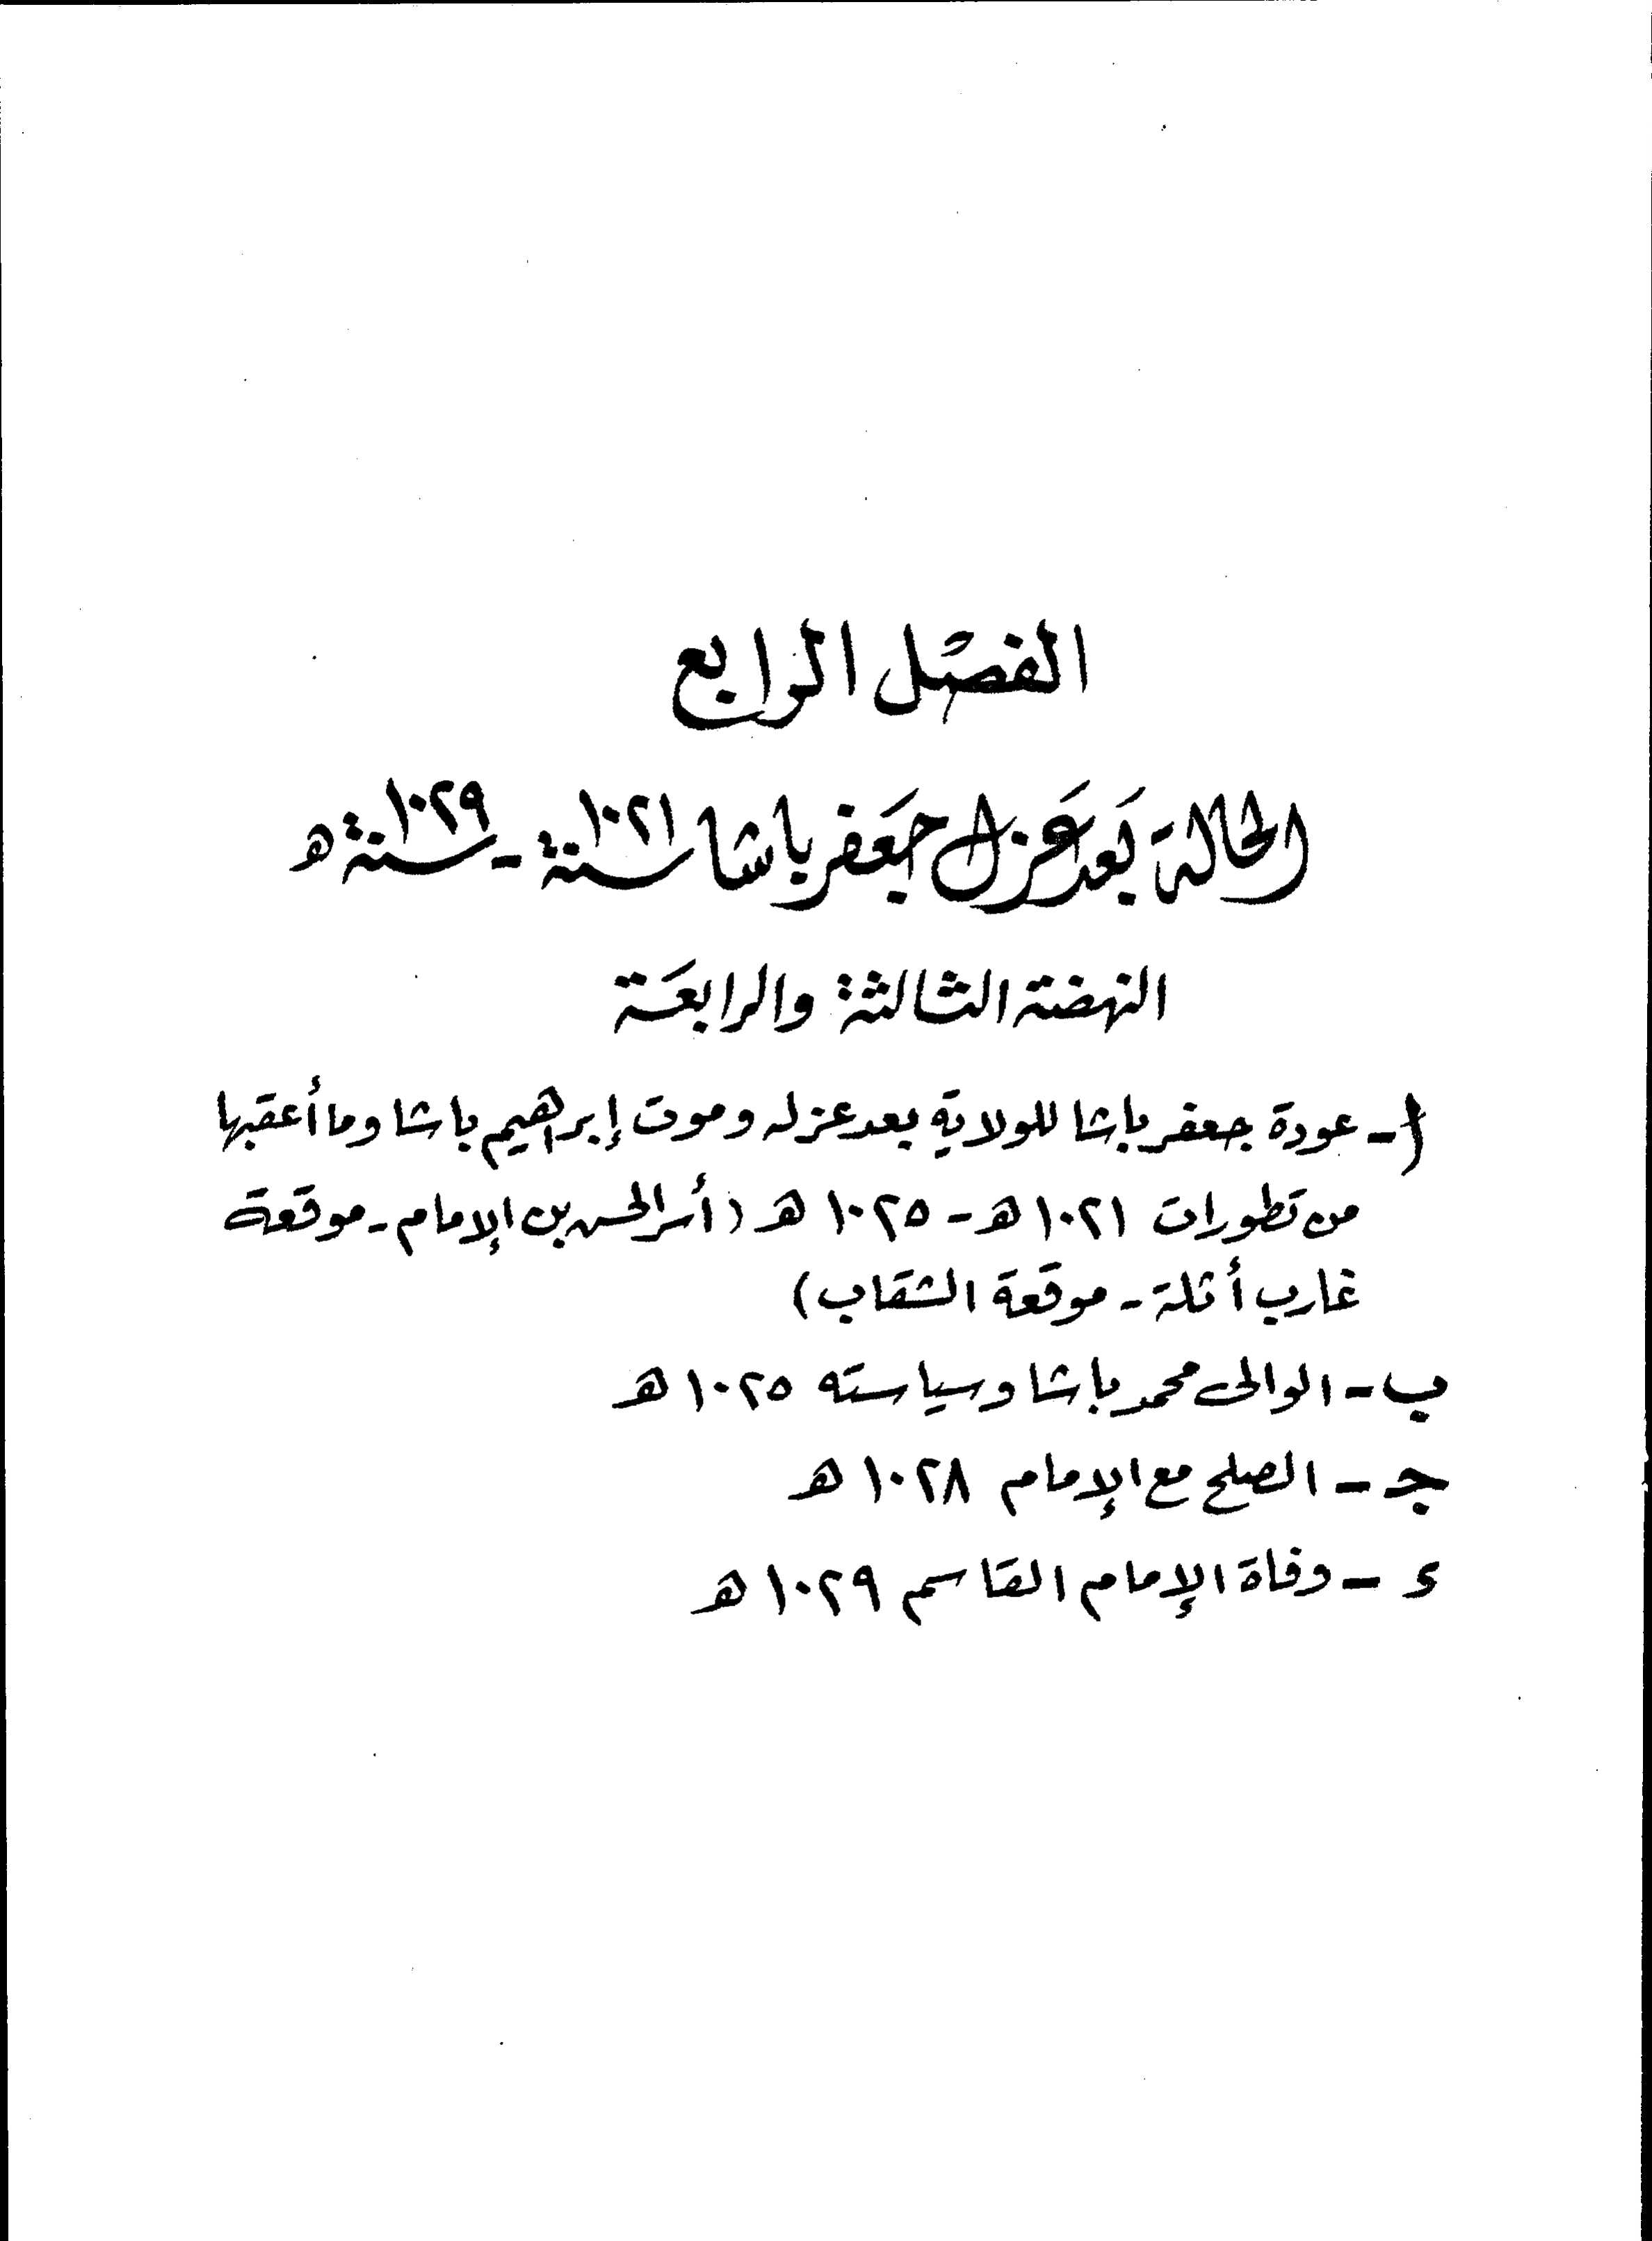 الفصل الرابع
الحالة بعد عزل جعفر باشا سنة ١٠٢١ - سنة ١٠٢٩ هـ
النهضة الثالثة والرابعة
أ - عودة جعفر باشا للولاية بعد عزله وموت إبراهيم باشا وما أعقبها
من تطورات ١٠٢١ هـ - ١٠٢٥ هـ (أسر الحسن بن الإمام - موقعة
غارب أثلة - موقعة الشقاب)
ب - الوالى محمد باشا وسياسته ١٠٢٥ هـ
جـ - الصلح مع الإمام ١٠٢٨ هـ
د - وفاة الإمام القاسم ١٠٢٩ هـ